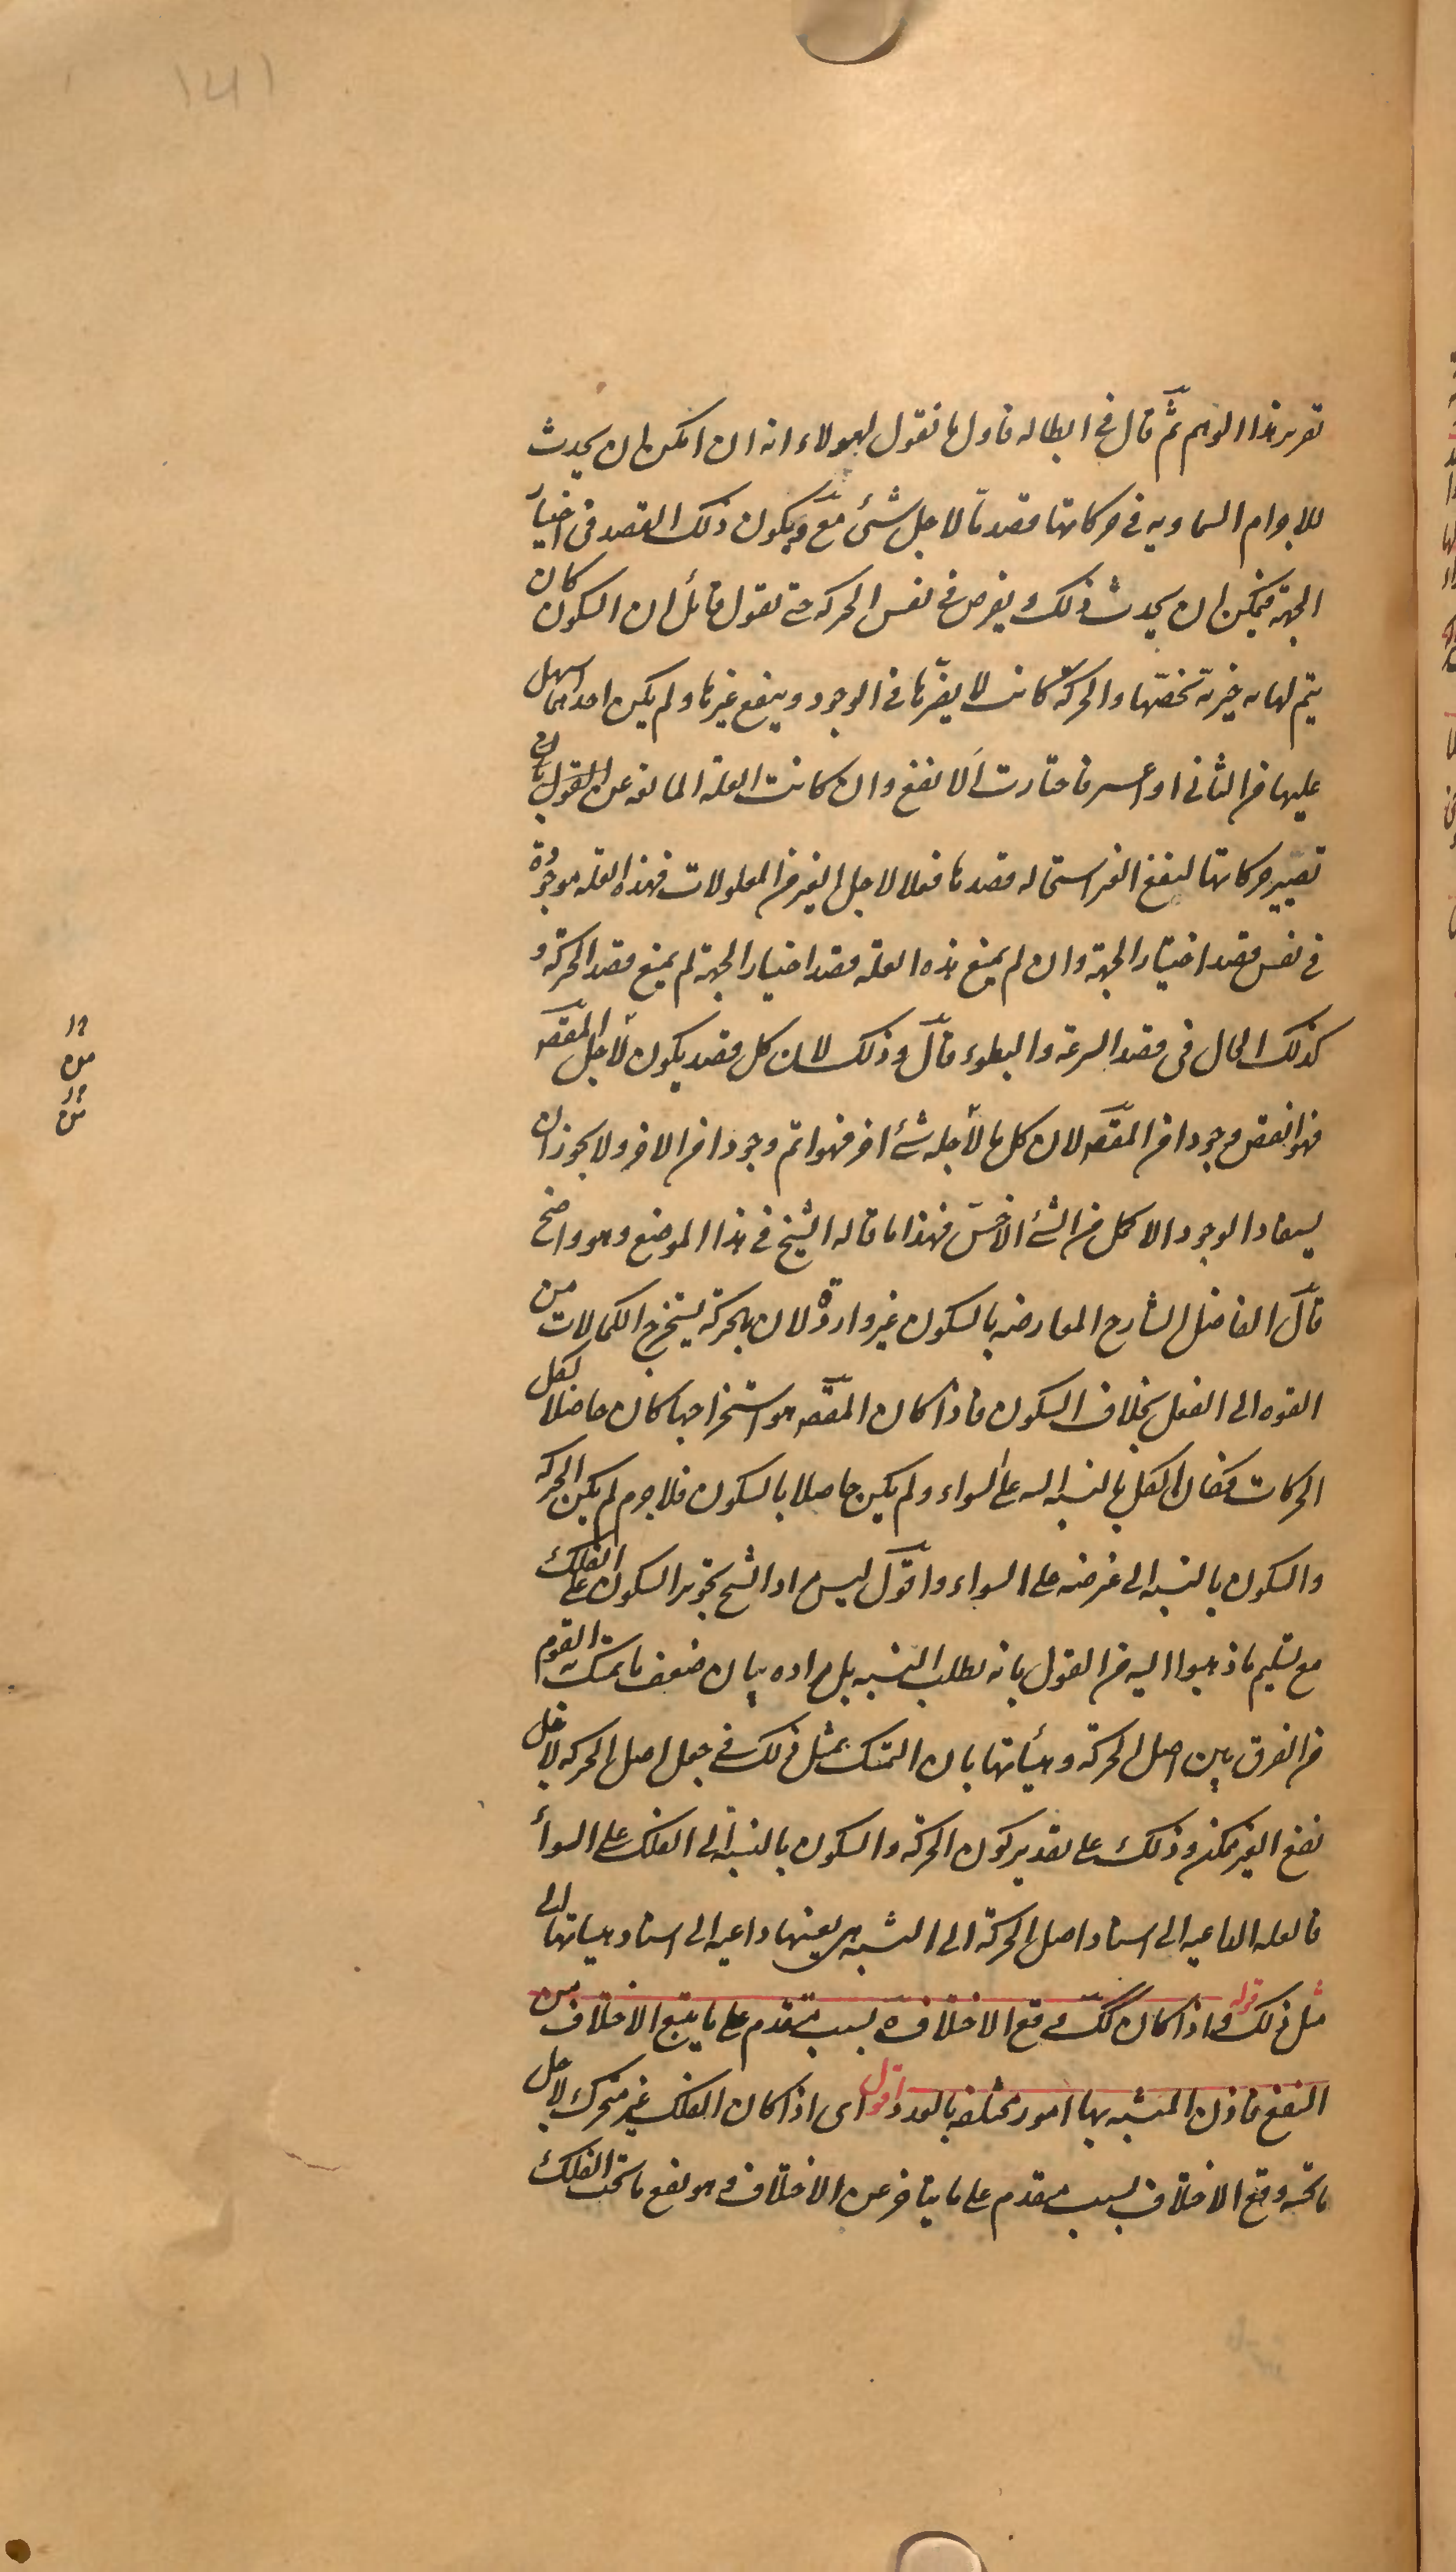 تقرير هذا الوهم ثم قال فى ابطاله فاول ما نقول لهولاء انه ان امكن ان يحدث
للاجرام السماويه فى حركاتها قصد ما لاجل شئ مع ويكون ذلك القصد فى اختيار
الجهة فيمكن ان يحدث ذلك و يعرض فى نفس الحركه حتى يقول قائل ان السكون كان
يتم لها به خيرية تخصّها والحركة كانت لا يضرّها فى الوجود وينفع غيرها ولم يكن احدهما اسهل
عليها من الثانى او اعسر فاختارت الانفع وان كانت العلة المانعه عن القول بان
تصيير حركاتها لنفع الغير استحاله قصدها فعلا لاجل الغير من المعلولات فهذه العله موجودة
فى نفس قصد اختيار الجهة وان لم يمنع هذه العله قصد اختيار الجهة لم يمنع قصد الحركة و
كذلك الحال فى قصد السرعة والبطوء قال وذلك لان كل قصد يكون لاجل المقصـ
فهو انقص وجودا من المقصـ لان كل ما لاجله شئ اخر فهو اتم وجودا من الاخر ولا يجوز ان
يستفاد الوجود الاكمل من الشئ الاخسّ فهذا ما قاله الشيخ فى هذا الموضع وهو واضح
قال الفاضل الشارح المعارضه بالسكون غير واردة لان بالحركة يستخرج الكمالات من
القوه الى الفعل بخلاف السكون فاذا كان المقصـ هو استخراجها كان حاصلا لكل
الحركات فكان الكل بالنسبه اليه على السواء ولم يكن حاصلا بالسكون فلاجرم لم يكن الحركه
والسكون بالنسبه الى غرضه على السواء واقول ليس مراد الشيخ تجويز السكون على الفلك
مع تسليم ما ذهبوا اليه من القول بانه يطلب التشبه بل مراده بيان ضعف ما تمسك به القوم
من الفرق بين اصل الحركة وهيأتها بان التمسك بمثل ذلك فى جعل اصل الحركه لاجل
نفع الغير ممكن وذلك على تقدير كون الحركة والسكون بالنسبة الى الفلك على السوأ
فالعله الداعيه الى اسناد اصل الحركة الى التشبه هى بعينها داعيه الى اسناد هيأتها الى
مثل ذلك قوله واذا كان كك وقع الاختلاف ه بسبب متقدم على ما يتبع الاختلاف من
النفع فاذن المتشبه بها امور مختلفه بالعدد اقول اى اذا كان الفلك غير متحرك لاجل
ما تحته وقع الاختلاف بسبب متقدم على ما يتاخر عن الاختلاف و هو نفع ما تحت الفلك